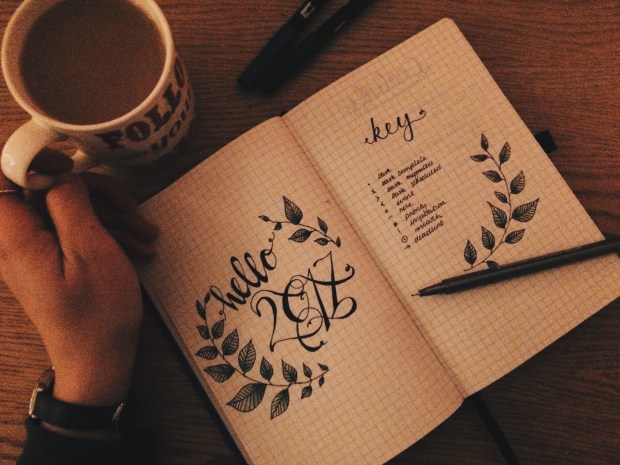 FOLLO
you
hello
2017
key
task
task complete
task migrated
task scheduled
event
note
priority
inspiration
research
deadline